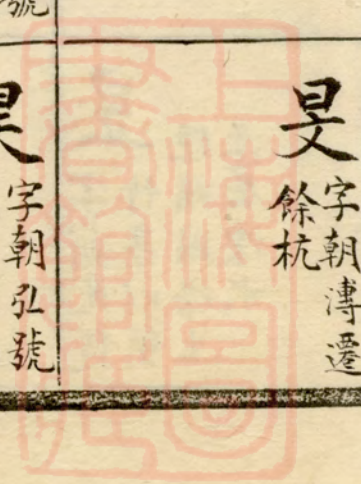 旻
字朝溥遷
餘杭
字朝弘號
號
上海圖
書館藏